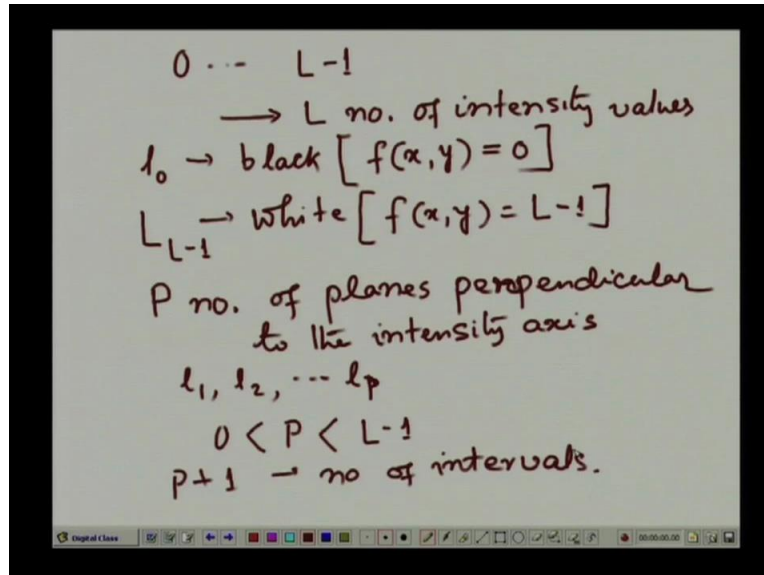 0 ... L-1
→ L no. of intensity values
l₀ → black [ f(x,y) = 0 ]
L_{L-1} → white [ f(x,y) = L-1 ]
P no. of planes perpendicular
to the intensity axis
l₁, l₂, ... lₚ
0 < P < L-1
P+1 → no of intervals.
Digital Class
00:00:00.00